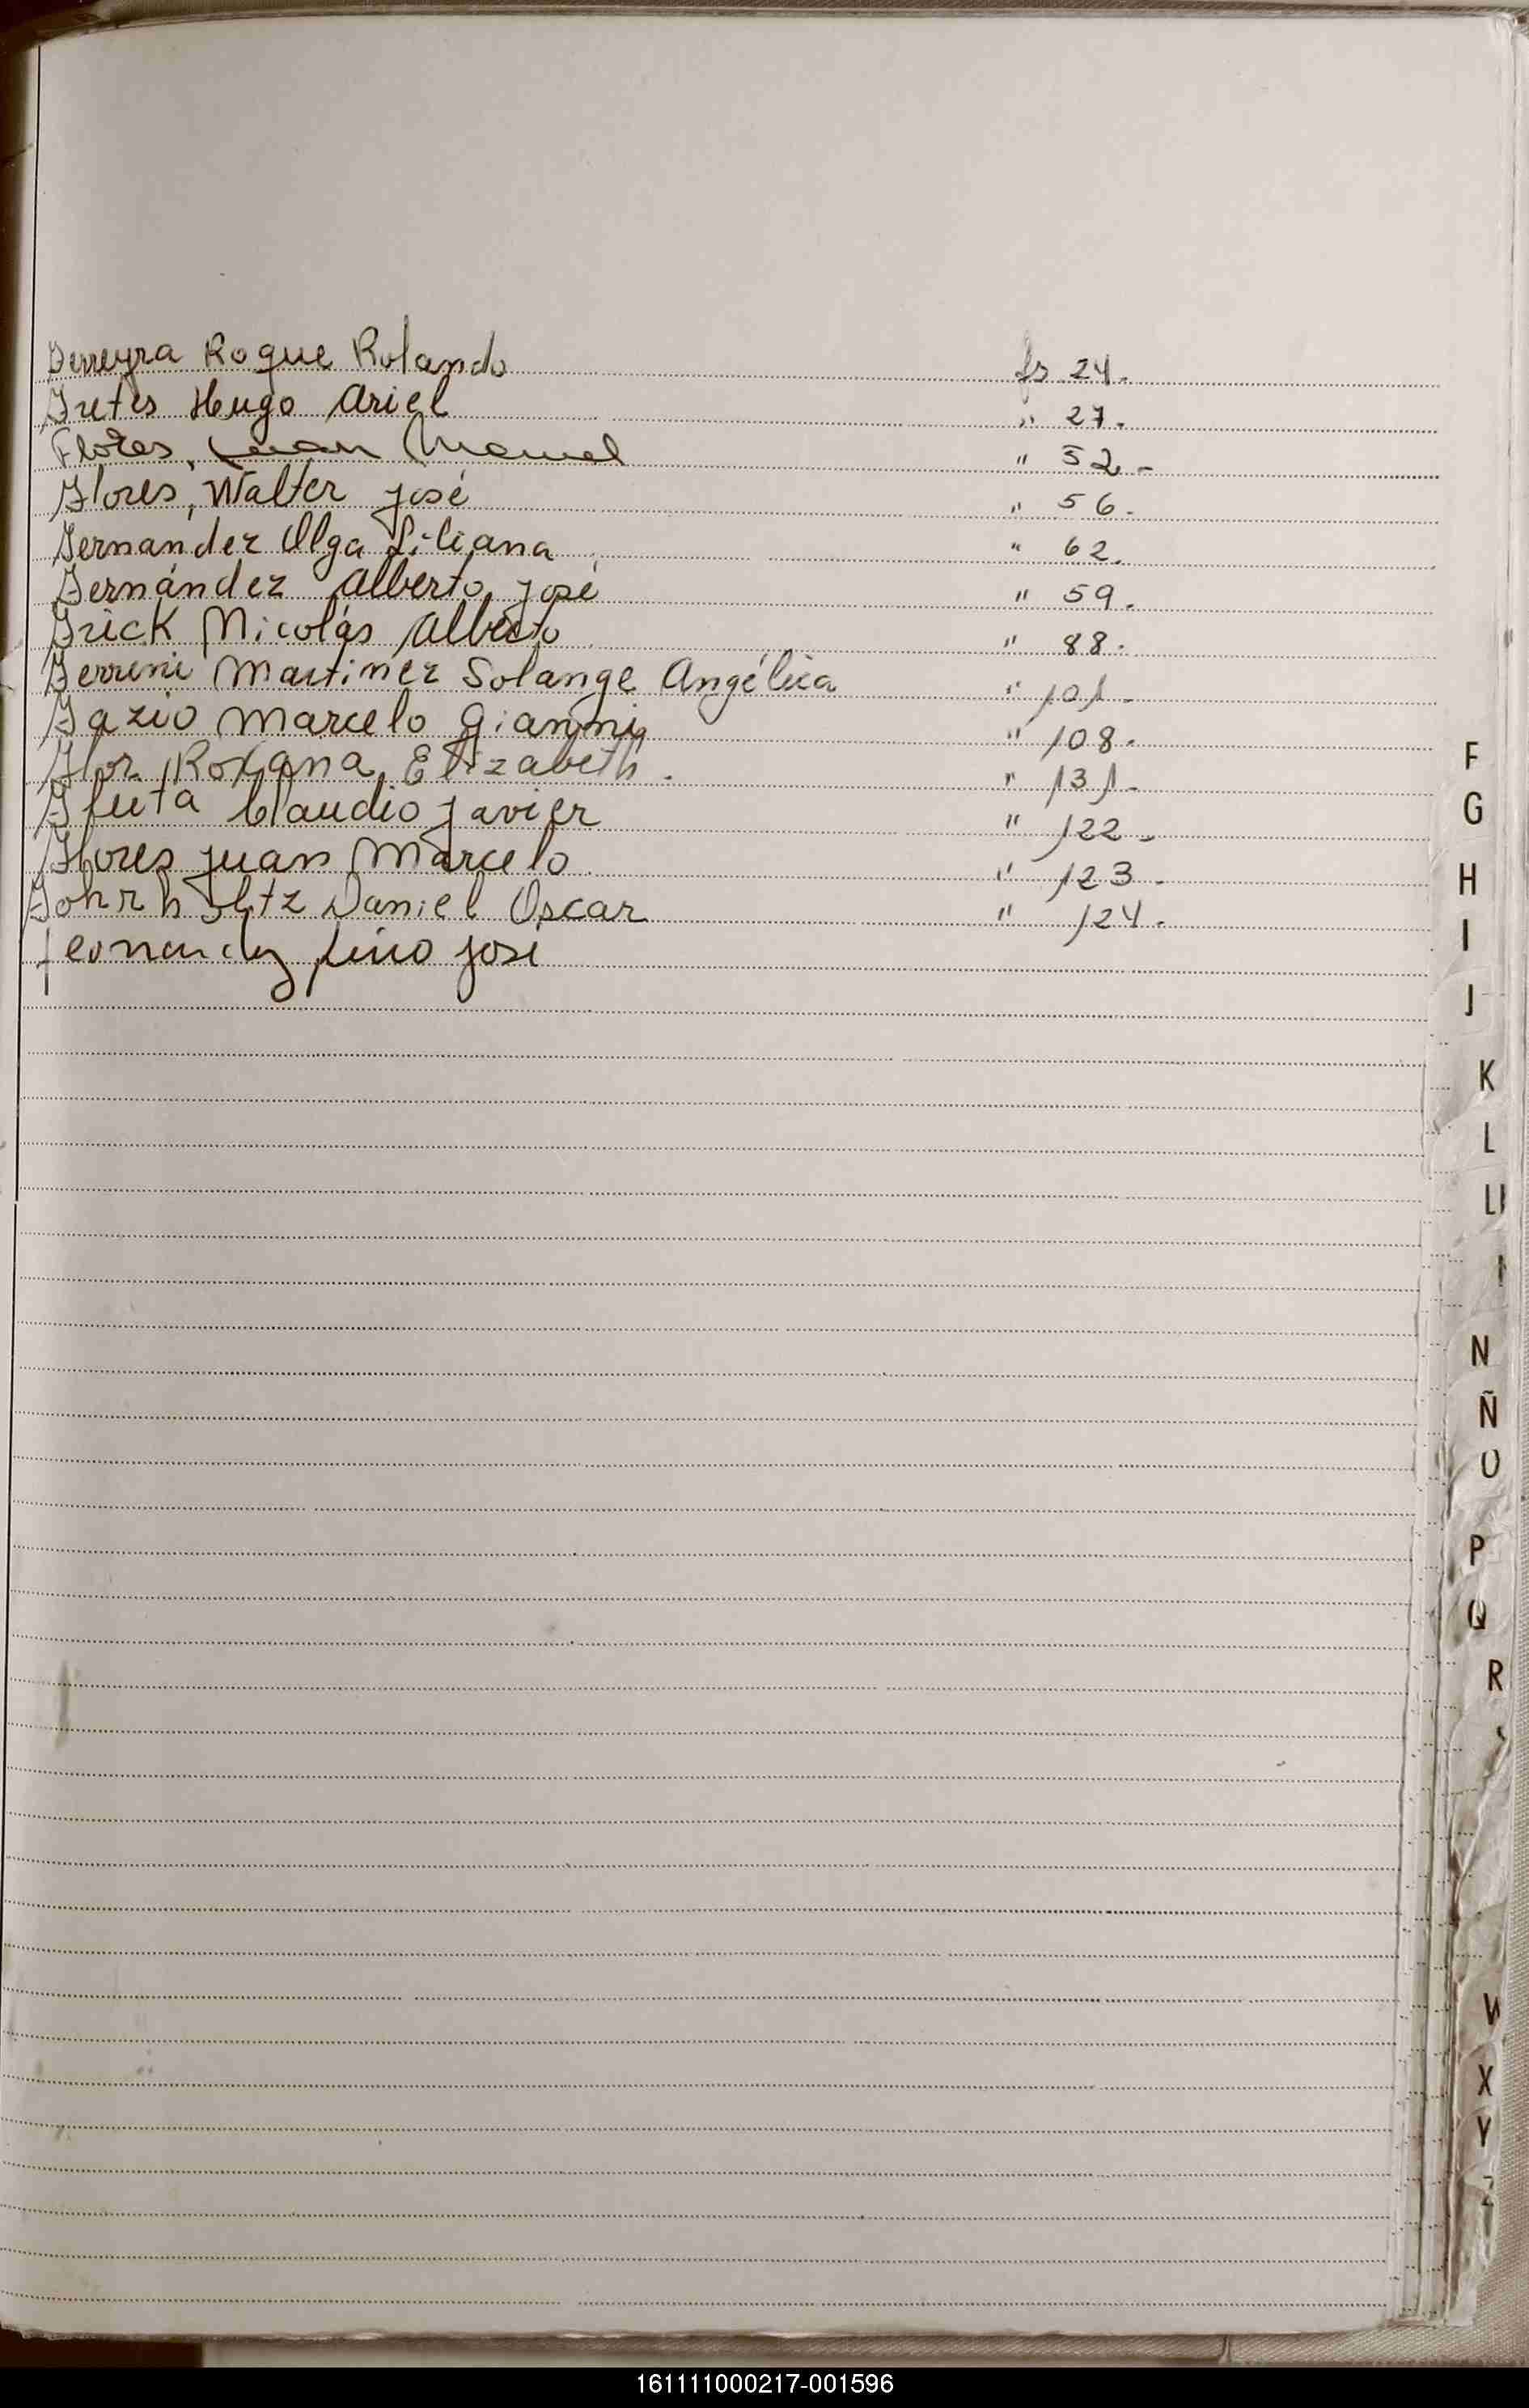 Ferreyra Roque Rolando fs 24.
Fretes Hugo Ariel " 27.
Flores, Juan Manuel " 52.-
Flores, Walter José " 56.-
Fernandez Olga Liliana " 62.
Fernández Alberto José " 59.
Frick Nicolás Alberto " 88.
Ferrini Martinez Solange Angélica " 101.-
Fazio Marcelo Gianni " 108.-
Flor Roxana Elizabeth. " 131.-
Claudio Javier " 122.-
Flores Juan Marcelo " 123.-
Daniel Oscar " 124.-
Fernandez Lino José
F
G
H
I
J
K
L
Ll
N
Ñ
O
P
Q
R
W
X
Y
Z
161111000217-001596